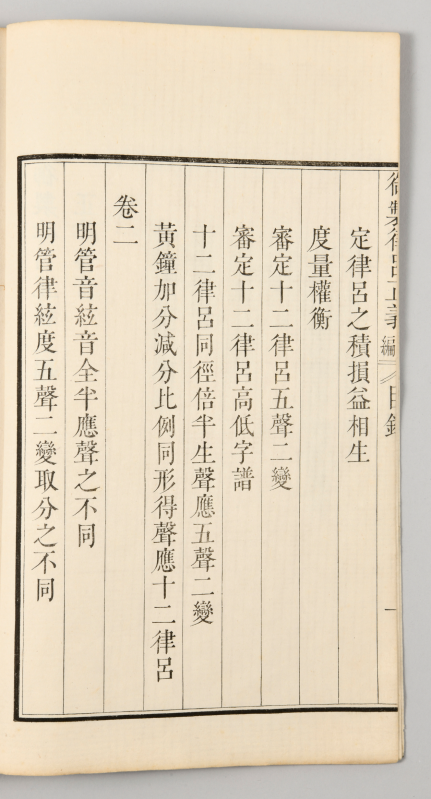 御製律呂正義 編 目錄 一
定律呂之積損益相生
度量權衡
審定十二律呂五聲二變
審定十二律呂高低字譜
十二律呂同徑倍半生聲應五聲二變
黃鐘加分減分比例同形得聲應十二律呂
卷二
明管音絃音全半應聲之不同
明管律絃度五聲二變取分之不同